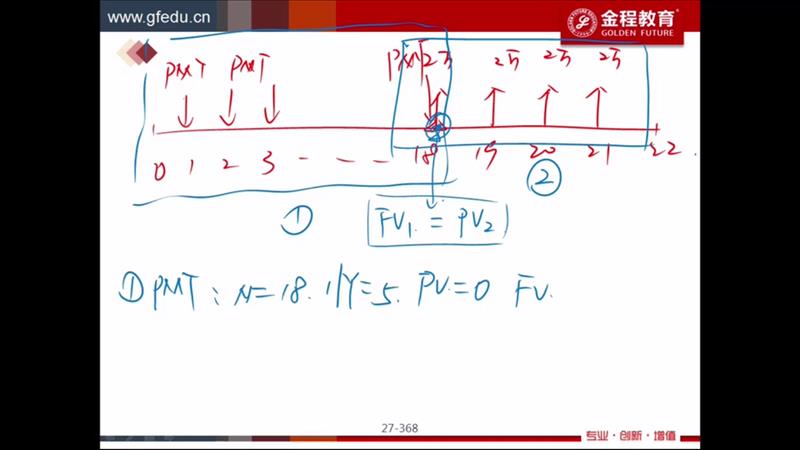 www.gfedu.cn
金程教育
GOLDEN FUTURE
PMT PMT PMT 2万 2万 2万 2万
0 1 2 3 - - - 18 19 20 21 22
① ②
FV₁ = PV₂
① PMT: N=18. I/Y=5. PV=0 FV.
27-368
专业·创新·增值